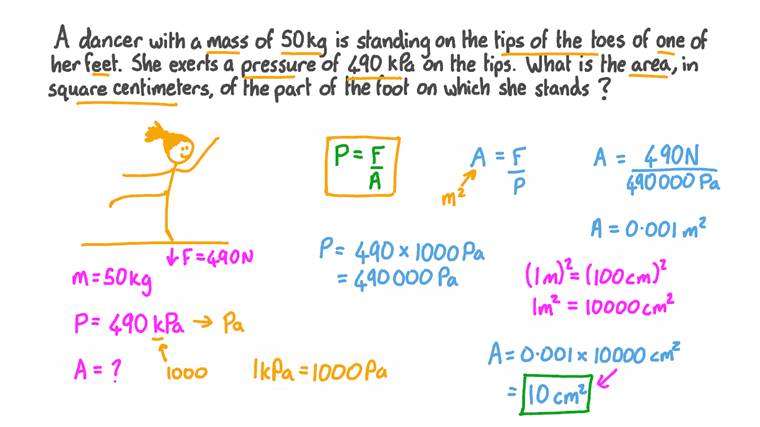 A dancer with a mass of 50kg is standing on the tips of the toes of one of
her feet. She exerts a pressure of 490 kPa on the tips. What is the area, in
square centimeters, of the part of the foot on which she stands ?
P = F/A
A = F/P
m²
A = 490N/490000 Pa
A = 0.001m²
↓F=490N
m=50kg
P = 490 kPa → Pa
1000
A = ?
1kPa = 1000Pa
P = 490 × 1000Pa
= 490000 Pa
(1m)² = (100cm)²
1m² = 10000cm²
A = 0.001 × 10000 cm²
= 10 cm²